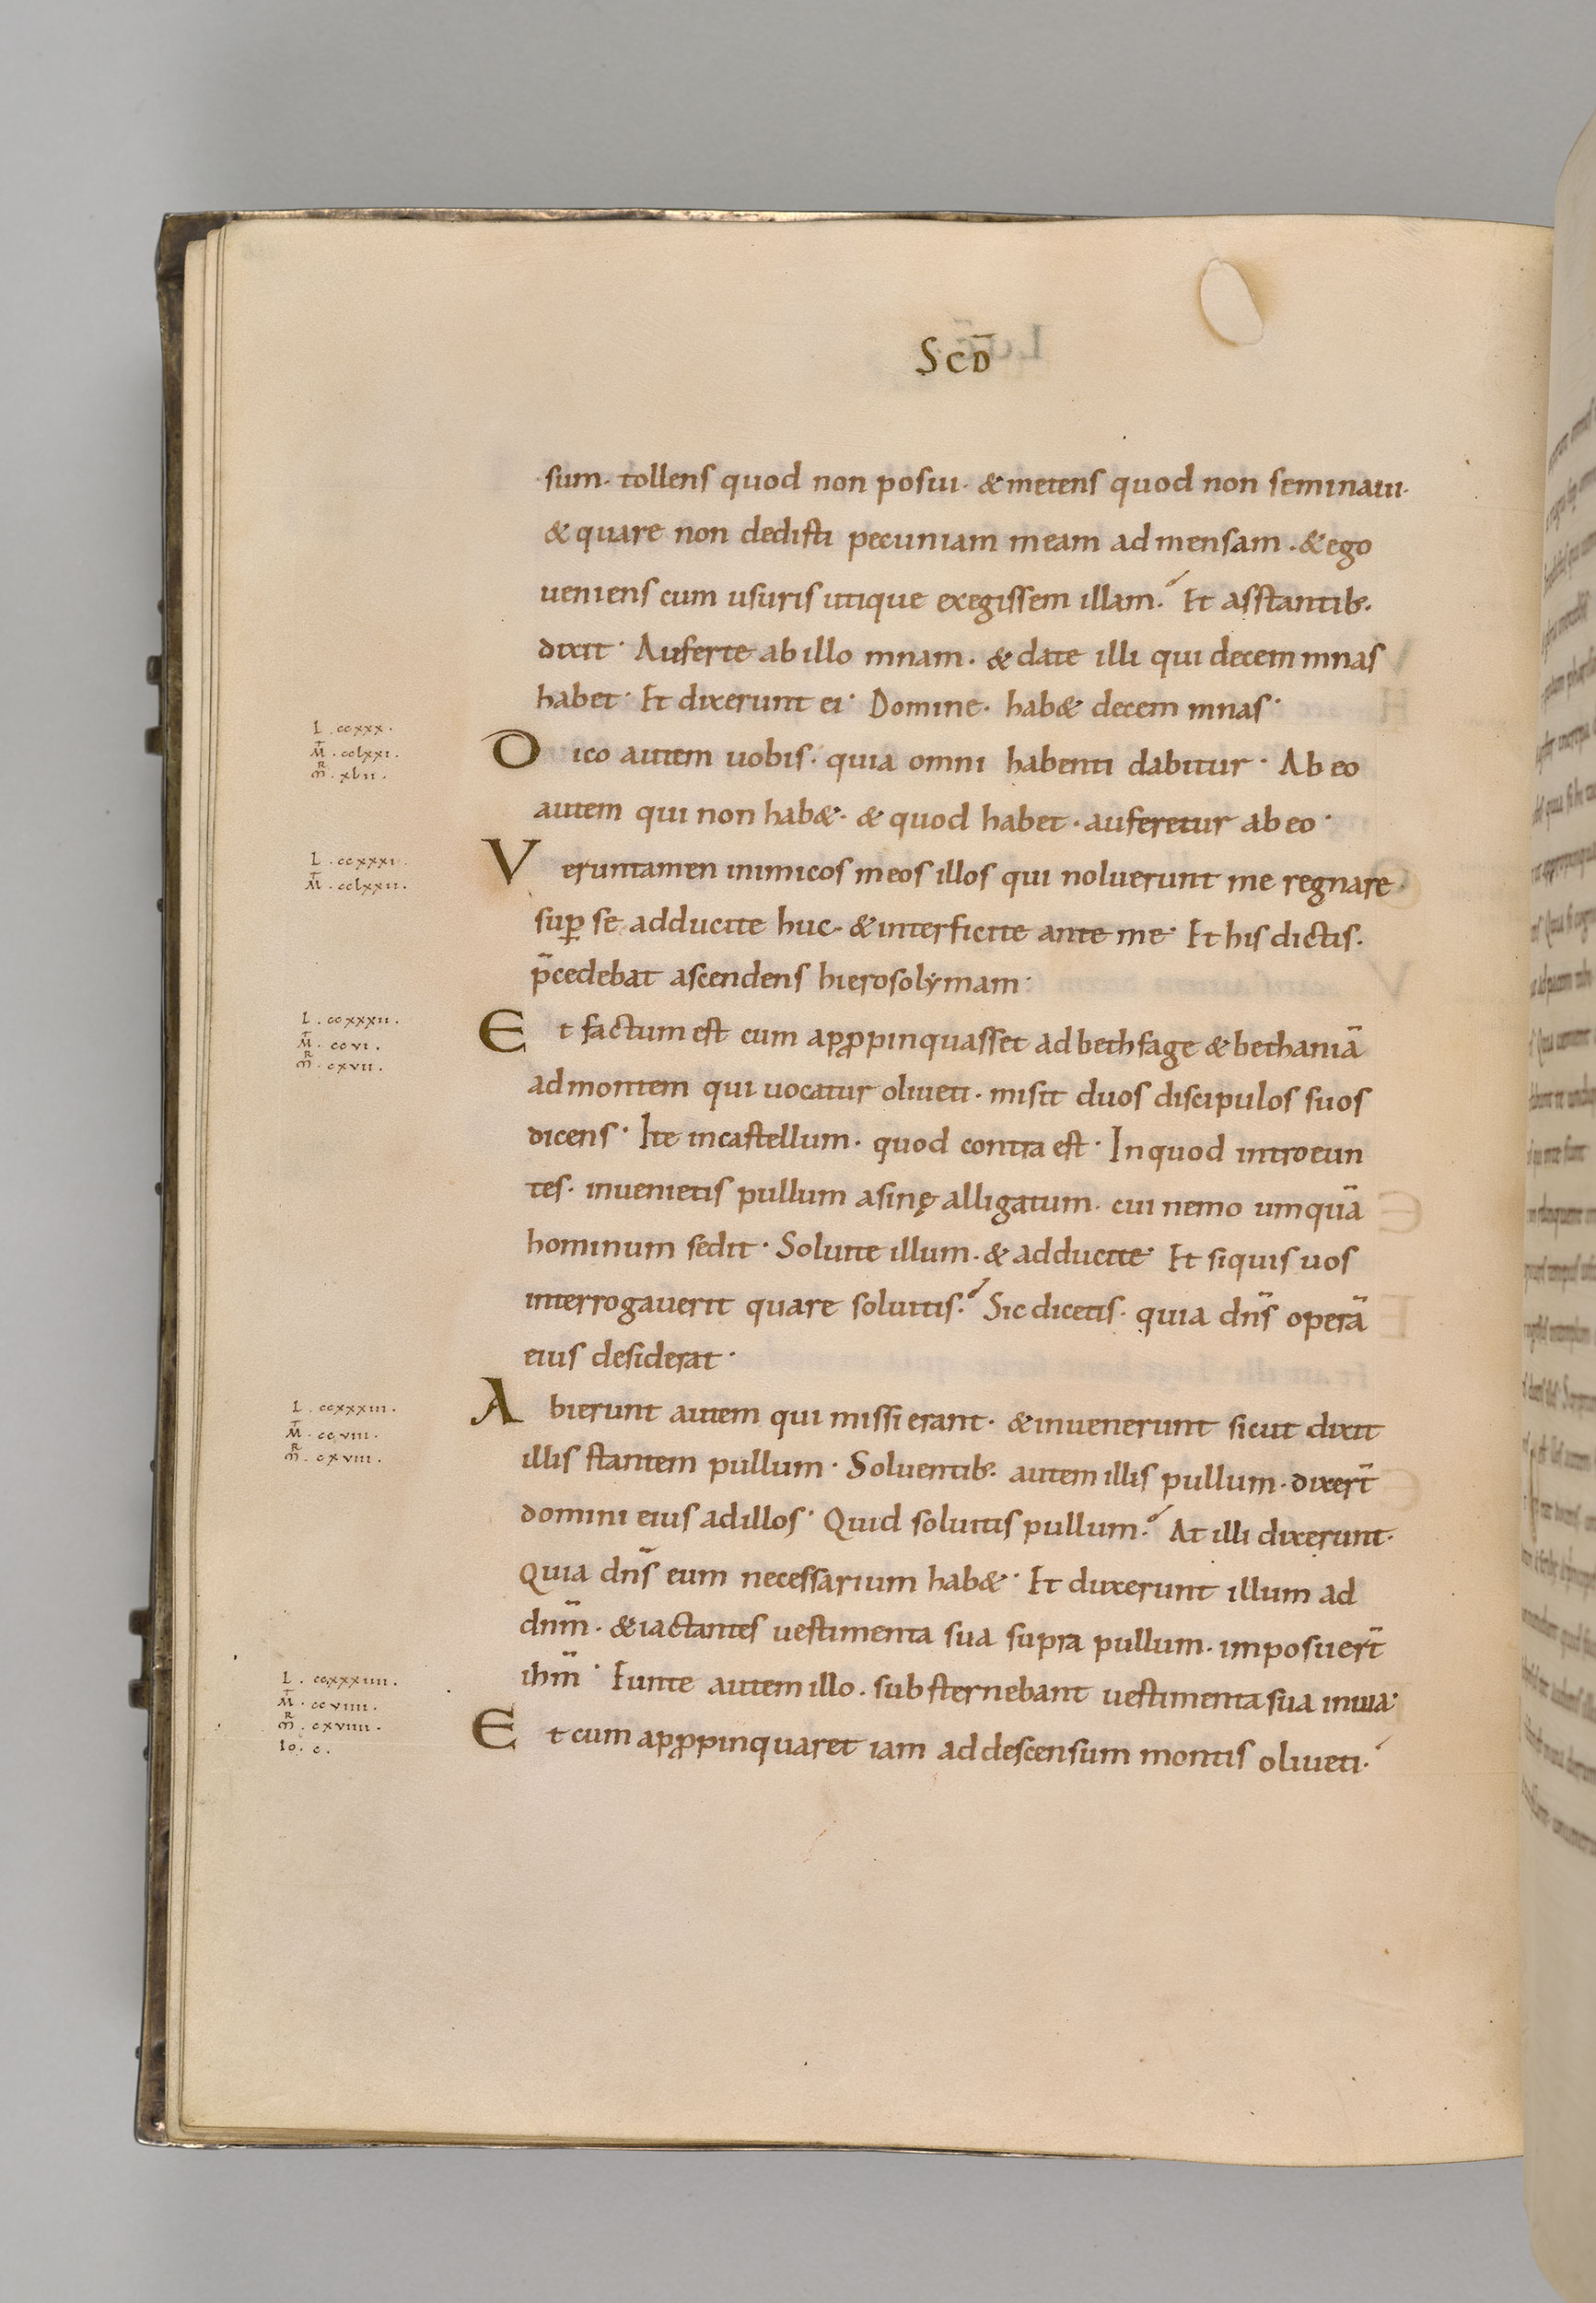 SCD̄
sum· tollens quod non posui· & metens quod non seminaui·
& quare non dedisti pecuniam meam ad mensam· & ego
ueniens cum usuris utique exegissem illam? Et asstantib·
dixit· Auferte ab illo mnam· & date illi qui decem mnas
habet· Et dixerunt ei· Domine· hab& decem mnas·
L · ccxxx ·
M̄T · cclxxi ·
MR · xlvii ·
Dico autem uobis· quia omni habenti dabitur· Ab eo
autem qui non hab&· & quod habet· auferetur ab eo·
L · ccxxxi ·
MT · cclxxii ·
Veruntamen inimicos meos illos qui noluerunt me regnare
suꝑ se adducite huc· & interficite ante me· Et his dictis·
p̄cedebat ascendens hierosolymam·
L · ccxxxii ·
MT · ccvi ·
MR · cxvii ·
Et factum est cum apꝓpinquasset ad bethfage & bethaniā
ad montem qui uocatur oliueti· misit duos discipulos suos
dicens· Ite in castellum· quod contra est· In quod introeun
tes· inuenietis pullum asinę alligatum· cui nemo umquā
hominum sedit· Soluite illum· & adducite· Et siquis uos
interrogauerit quare soluitis? Sic dicetis· quia dn̄s operā
eius desiderat·
L · ccxxxiii ·
MT · ccviii ·
MR · cxviii ·
Abierunt autem qui missi erant· & inuenerunt sicut dixit
illis stantem pullum· Soluentib· autem illis pullum· dixer̄t
domini eius ad illos· Quid soluitis pullum? At illi dixerunt·
Quia dn̄s eum necessarium hab&· Et duxerunt illum ad
dn̄m· & iactantes uestimenta sua supra pullum· imposuer̄t
ihm̄· Eunte autem illo· substernebant uestimenta sua in uia·
L · ccxxxiiii ·
MT · ccviiii ·
MR · cxviiii ·
Io · c ·
Et cum apꝓpinquaret iam ad descensum montis oliueti·